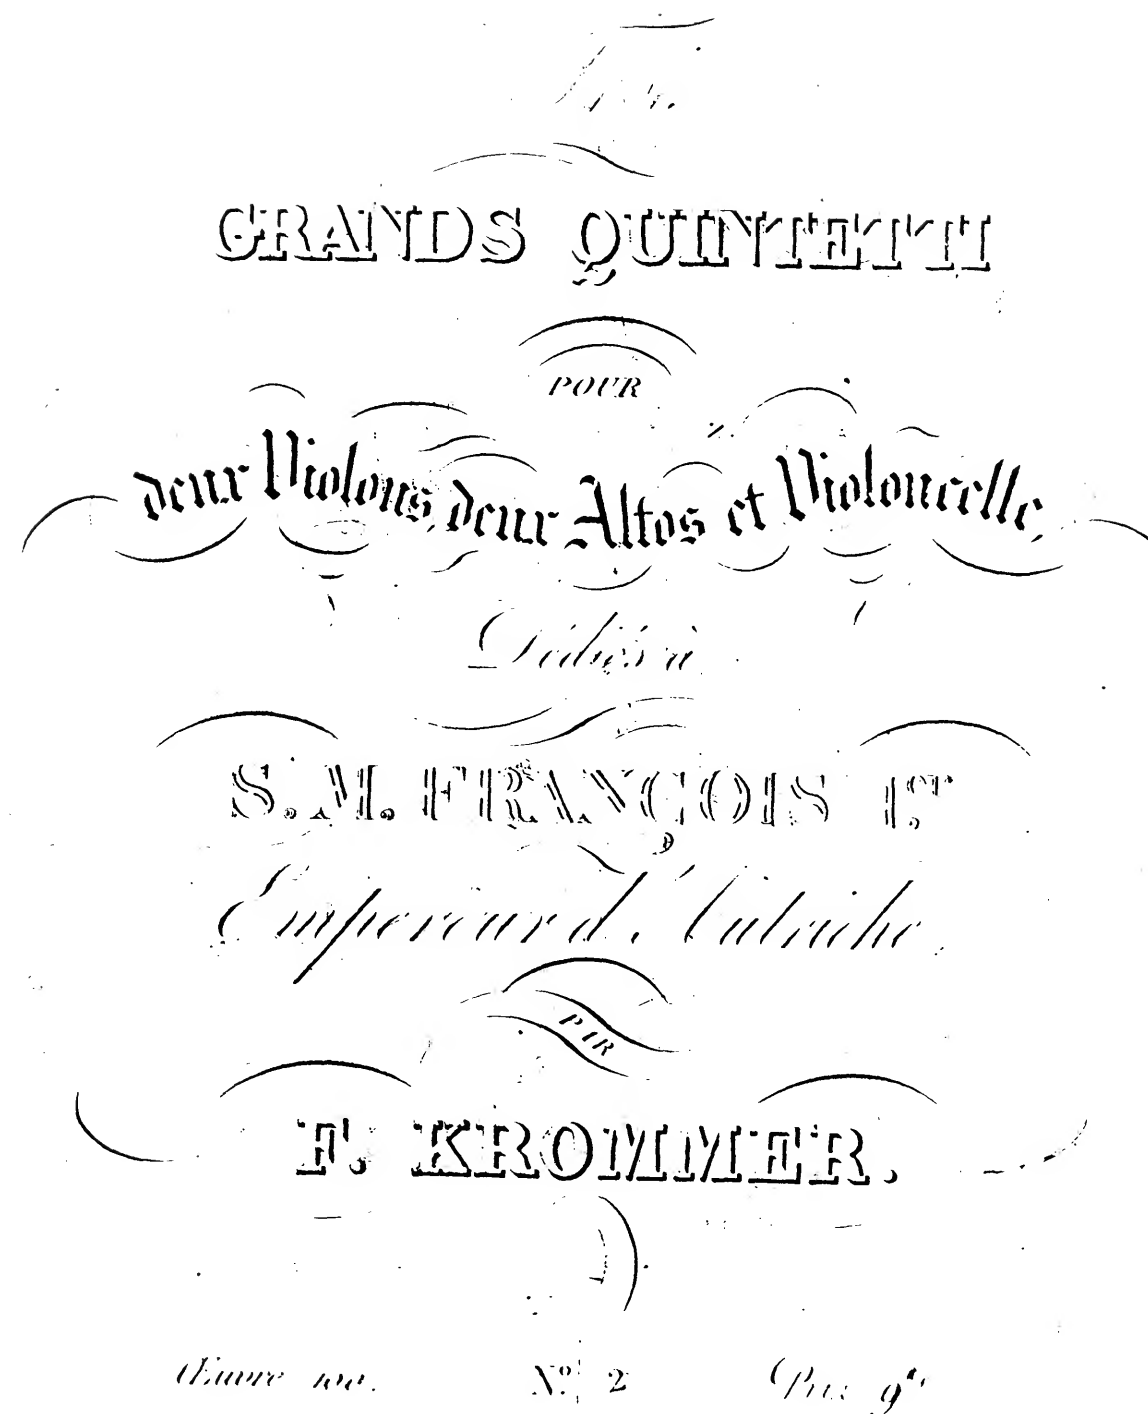 GRANDS QUINTETTI
POUR
deux Violons, deux Altos et Violoncelle,
Dédiés à
S. M. FRANÇOIS I.er
Empereur d'Autriche,
PAR
F. KROMMER.
Œuvre 100. N.º 2 Prix 9